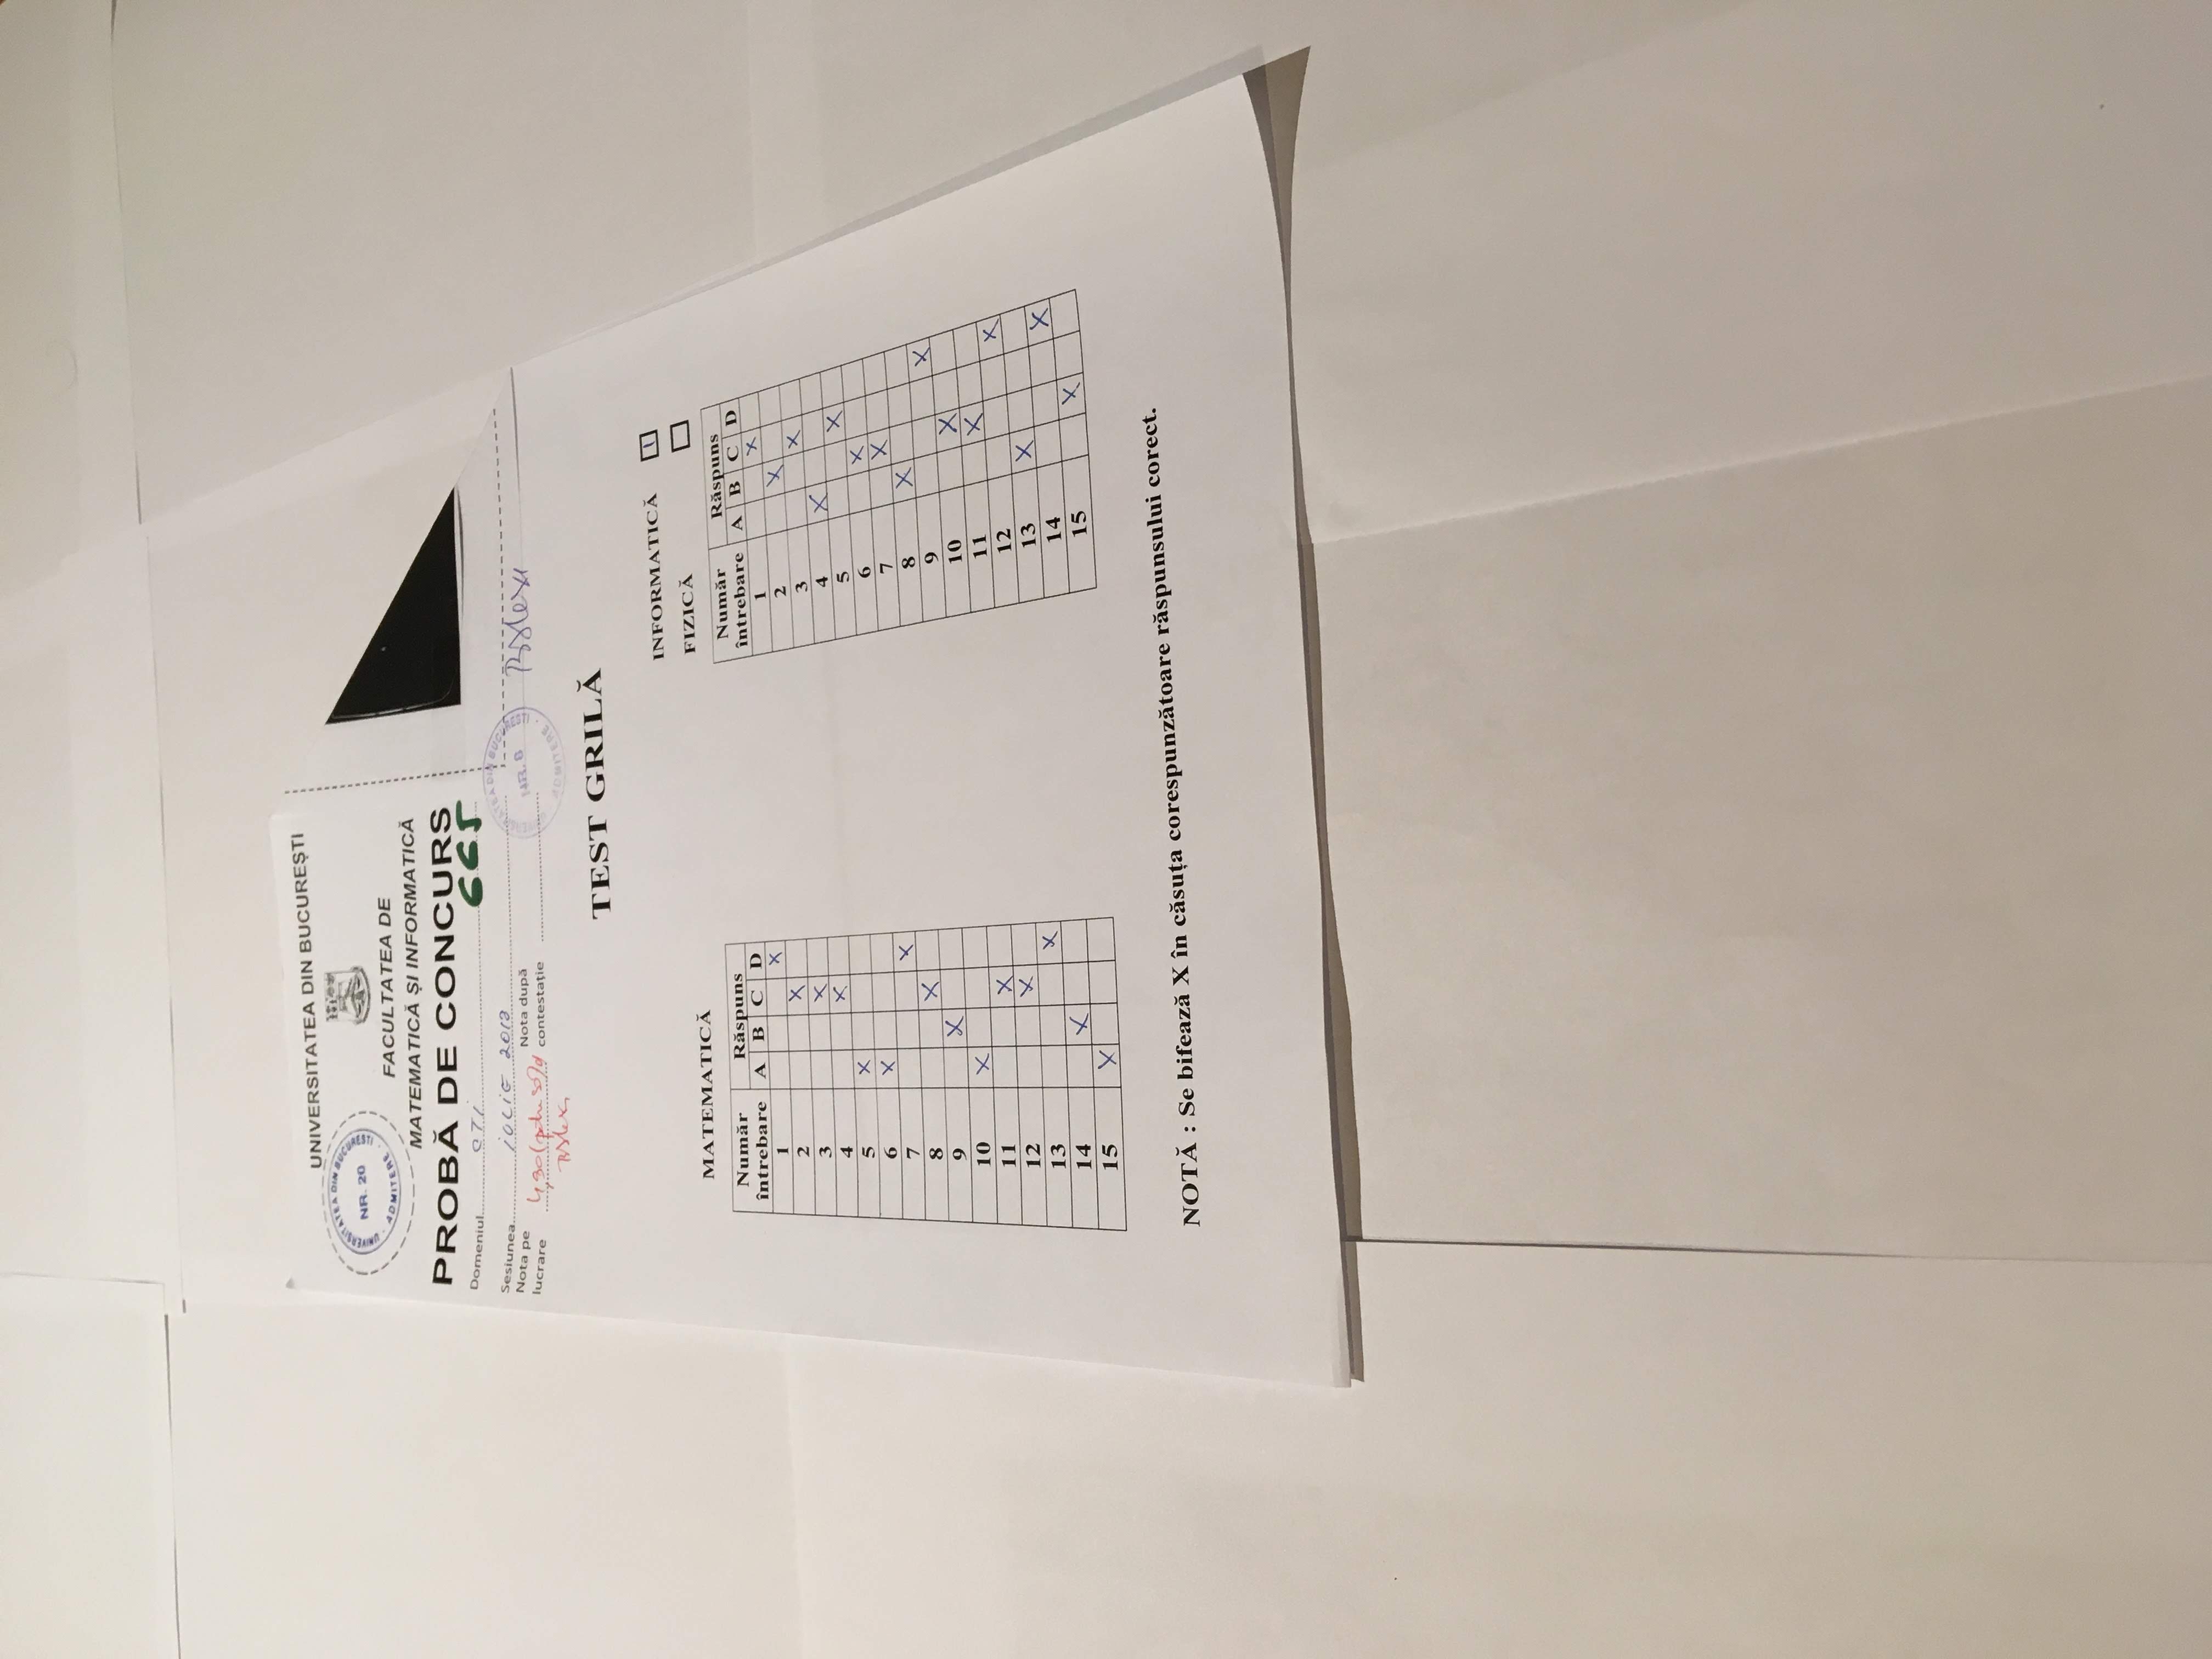 UNIVERSITATEA DIN BUCUREȘTI
UNIVERSITATEA DIN BUCUREȘTI
NR. 20
ADMITERE
FACULTATEA DE
MATEMATICĂ ȘI INFORMATICĂ
PROBĂ DE CONCURS
Domeniul CTI 665
Sesiunea IULIE 2018
Nota pe lucrare 4,30 Nota după contestație
NR. 8
ADMITERE
TEST GRILĂ
INFORMATICĂ 1
FIZICĂ
MATEMATICĂ
Număr întrebare Răspuns
A B C D
1 X
2 X
3 X
4 X
5 X
6 X
7 X
8 X
9 X
10 X
11 X
12 X
13 X
14 X
15 X
Număr întrebare Răspuns
A B C D
1 X
2 X
3 X
4 X
5 X
6 X
7 X
8 X
9 X
10 X
11 X
12 X
13 X
14 X
15 X
NOTĂ : Se bifează X în căsuța corespunzătoare răspunsului corect.